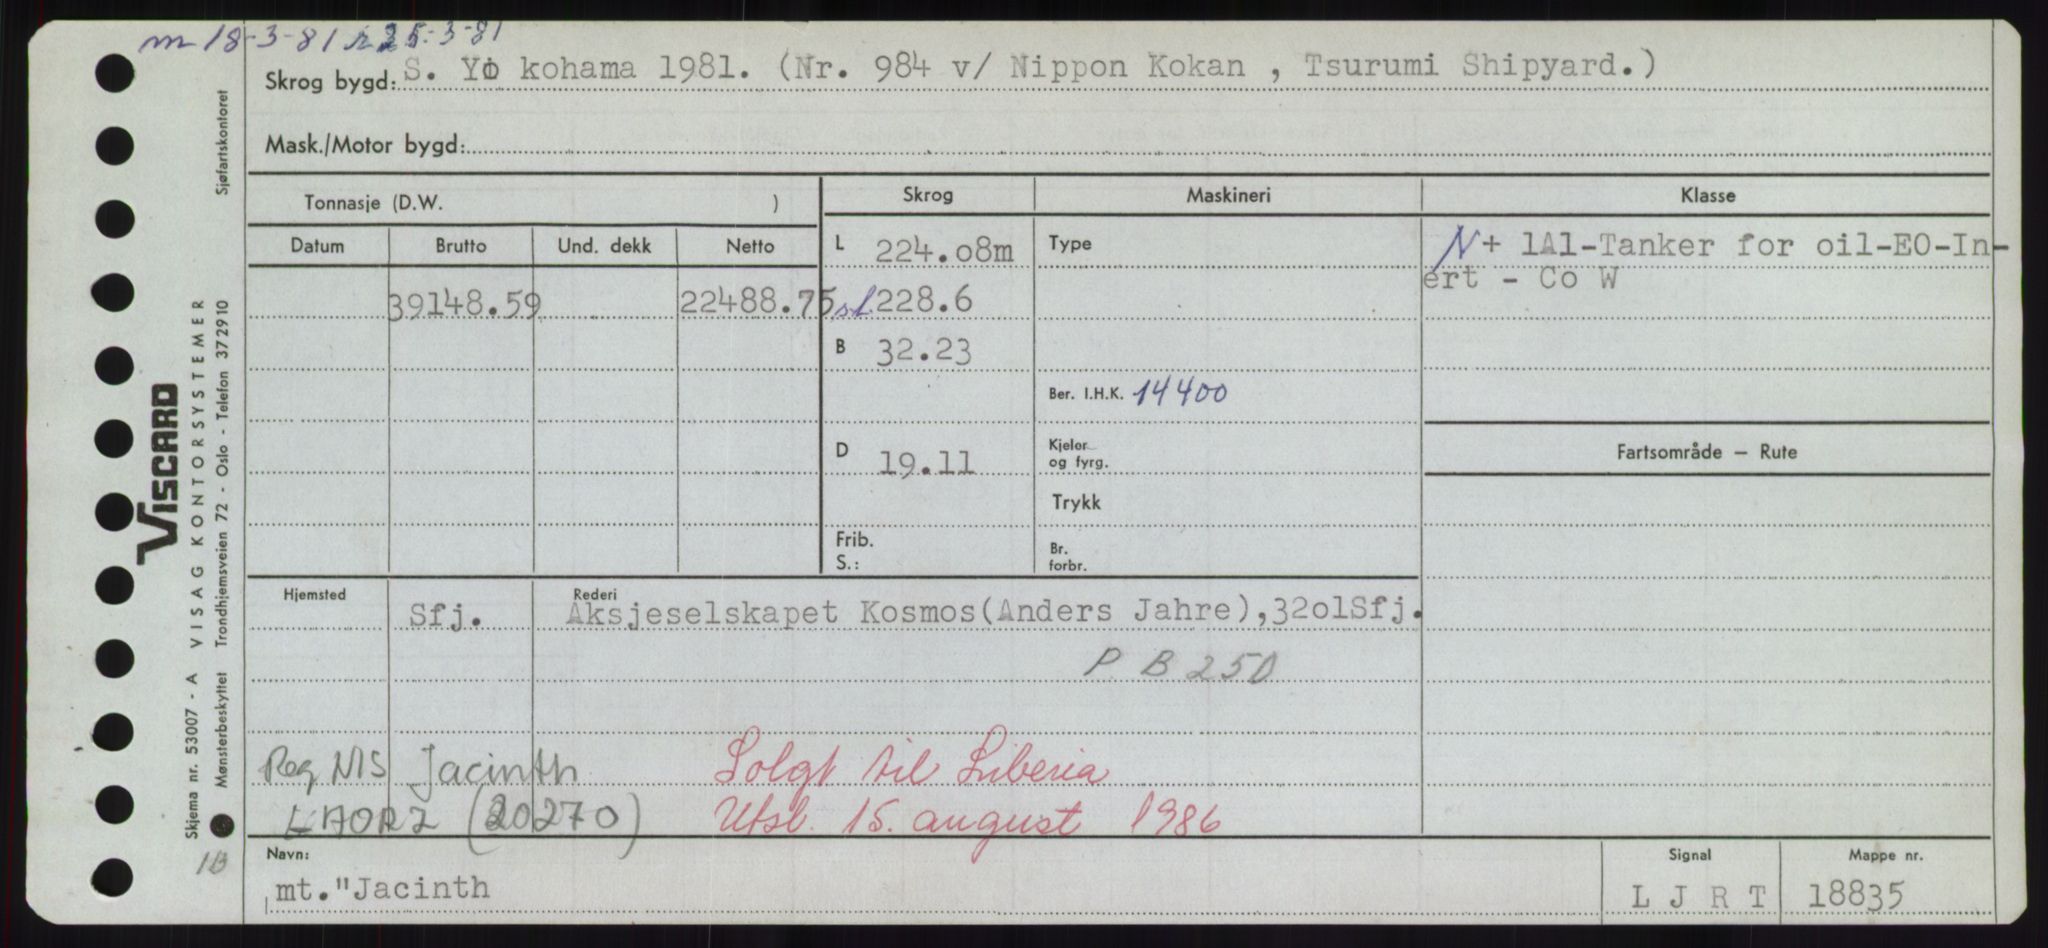 m 18-3-81 r 25-3-81
Skrog bygd: S. Yo kohama 1981. (Nr. 984 v/ Nippon Kokan , Tsurumi Shipyard.)
Mask./Motor bygd:
Tonnasje (D.W. )
Skrog Maskineri Klasse
Datum Brutto Und. dekk Netto
L 224.o8m Type N + 1A1-Tanker for oil-EO-In-
ert - Co W
39148.59 22488.75 st. 228.6
B 32.23
Ber. I.H.K. 14400
D 19.11 Kjeler
og fyrg.
Fartsområde — Rute
Trykk
Frib.
S.: Br.
forbr.
Hjemsted Sfj. Rederi Aksjeselskapet Kosmos(Anders Jahre),32o1Sfj.
P B 250
Reg. NIS Jacinth Solgt til Liberia
LAOR2 (20270) Utsl. 15. august 1986
Navn: mt."Jacinth
Signal L J R T
Mappe nr. 18835
VISCARD
Skjema nr. 53007 - A VISAG KONTORSYSTEMER
Mønsterbeskyttet Trondhjemsveien 72 - Oslo - Telefon 372910 Sjøfartskontoret
1B